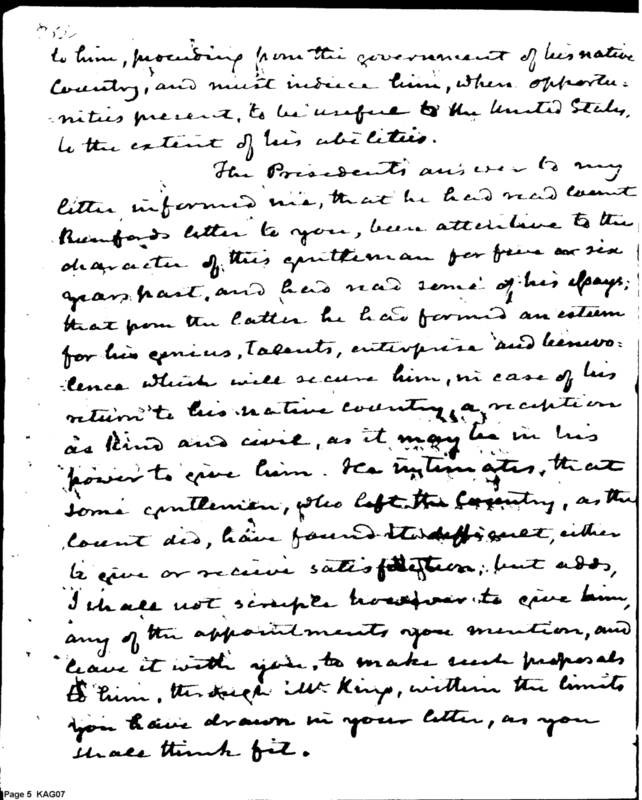 to him, proceeding from the government of his native
Country, and must induce him, when opportu-
nities present, to be useful to the United States,
to the extent of his abilities.
The Presidents answer to my
letter informed me, that he had read Count
Rumfords letter to you, been attentive to the
character of this gentleman for five or six
years past, and had read some of his essays;
that from the latter he had formed an esteem
for his genius, talents, enterprise and benevo-
lence which will secure him, in case of his
return to his native country, a reception
as kind and civil, as it may be in his
power to give him. He intimates, that
some gentlemen, who left the Country, as the
Count did, have found it difficult, either
to give or receive satisfaction; but adds,
I shall not scruple however to give him,
any of the appointments you mention, and
leave it with you, to make such proposals
to him, through Mr. King, within the limits
you have drawn in your letter, as you
shall think fit.
Page 5 KAG07